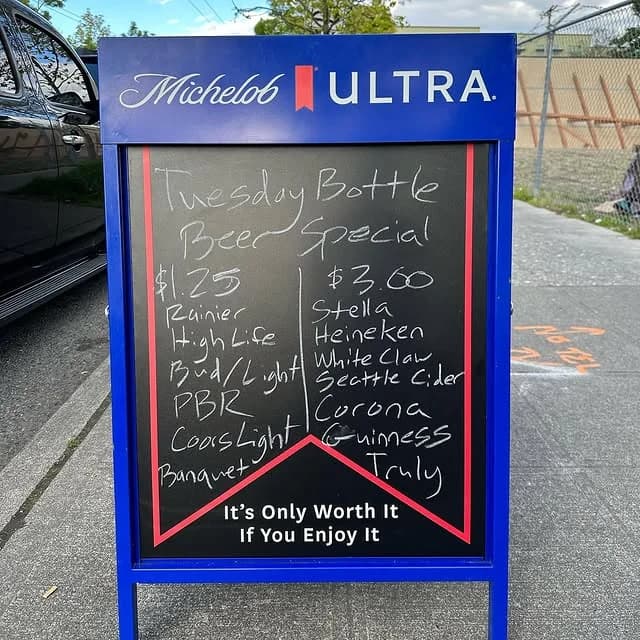 Michelob ULTRA.
Tuesday Bottle
Beer Special
$1.25
Rainier
High Life
Bud/Light
PBR
Coors Light
Banquet
$3.60
Stella
Heineken
White Claw
Seattle Cider
Corona
Guinness
Truly
It's Only Worth It
If You Enjoy It